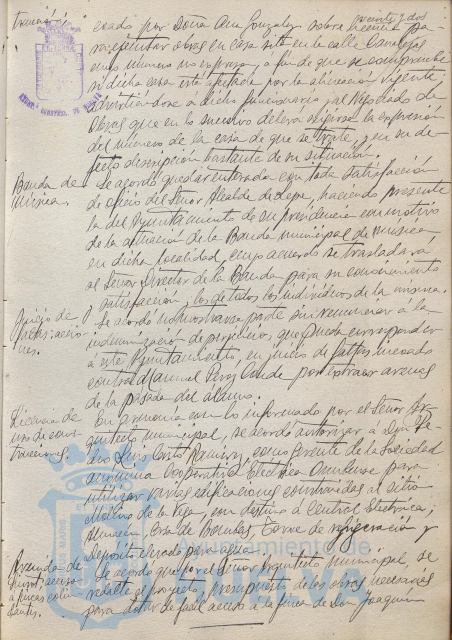 veinte y dos
coado por Doña Ana Gonzalez sobre licencia pa-
ra ejecutar obras en casa sita en la calle Canalejas
cuyo número no expresa, a fin de que se compruebe
si dicha casa está afectada por la alineación vigente
advirtiéndose a dicho funcionario y al Negociado de
Obras que en lo sucesivo deberá exigirse la expresión
del número de la casa de que se trate, y en su de-
fecto descripción bastante de su situación.
Banda de
Música.
Se acordó quedar enterada con toda satisfacción
de oficio del Señor Alcalde de Lepe, haciendo presente
la del Ayuntamiento de su presidencia con motivo
de la actuación de la Banda municipal de música
en dicha localidad, cuyo acuerdo se trasladará
al Señor Director de la Banda para su conocimiento
satisfacción, y los de todos los individuos de la misma.
Juicio de
faltas
Se acordó no mostrarse parte sin renunciar a la
indemnización de perjuicios, que pueda corresponder
a este Ayuntamiento, en juicio de faltas incoado
contra Manuel Perez Conde por extraer arenas
de la posada del alamo.
Licencia de
uso de cons-
trucciones.
En armonía con lo informado por el Señor Ar-
quitecto municipal, se acordó autorizar a Don Pe-
dro Ramirez, como gerente de la Sociedad
anónima Cooperativa Electrica Onubense para
utilizar varias edificaciones construidas al sitio
Molino de la Vega, con destino a Central Electrica,
Almacen, Casa de Bombas, Torre de refrigeración y
Deposito elevado para agua.
Avenida de
acceso
a fincas colin-
dantes.
Se acordó que por el Señor Arquitecto municipal, se
redacte el proyecto y presupuesto de las obras necesarias
para dotar de facil acceso a la finca de Don Joaquin
Ayuntamiento de